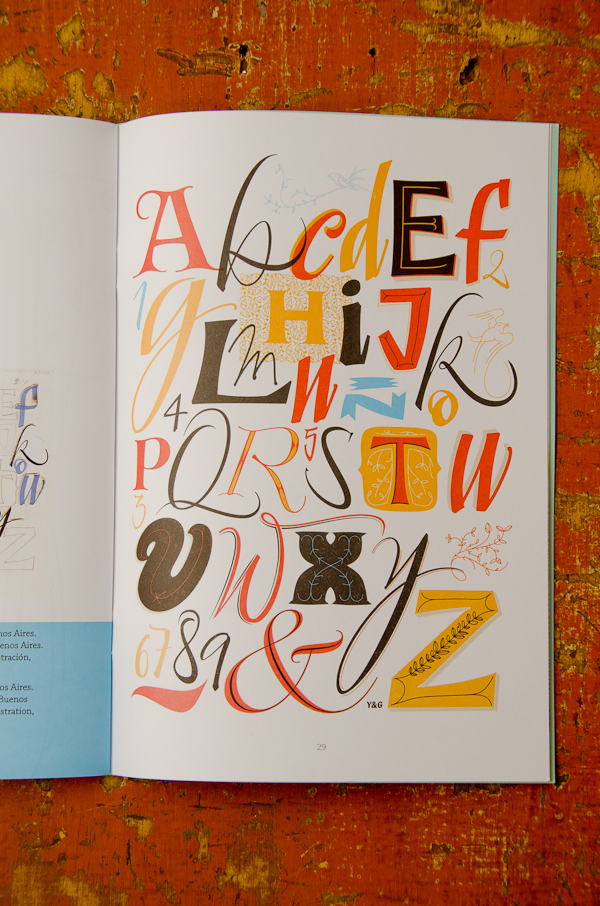 nos Aires.
enos Aires.
stración,
os Aires.
Buenos
stration,
A b c d E f 2
1 g H i J k
L m n Ñ o
4
P Q R 5 S T u
3
V W X y
6 7 8 9 & Z
Y&G
29